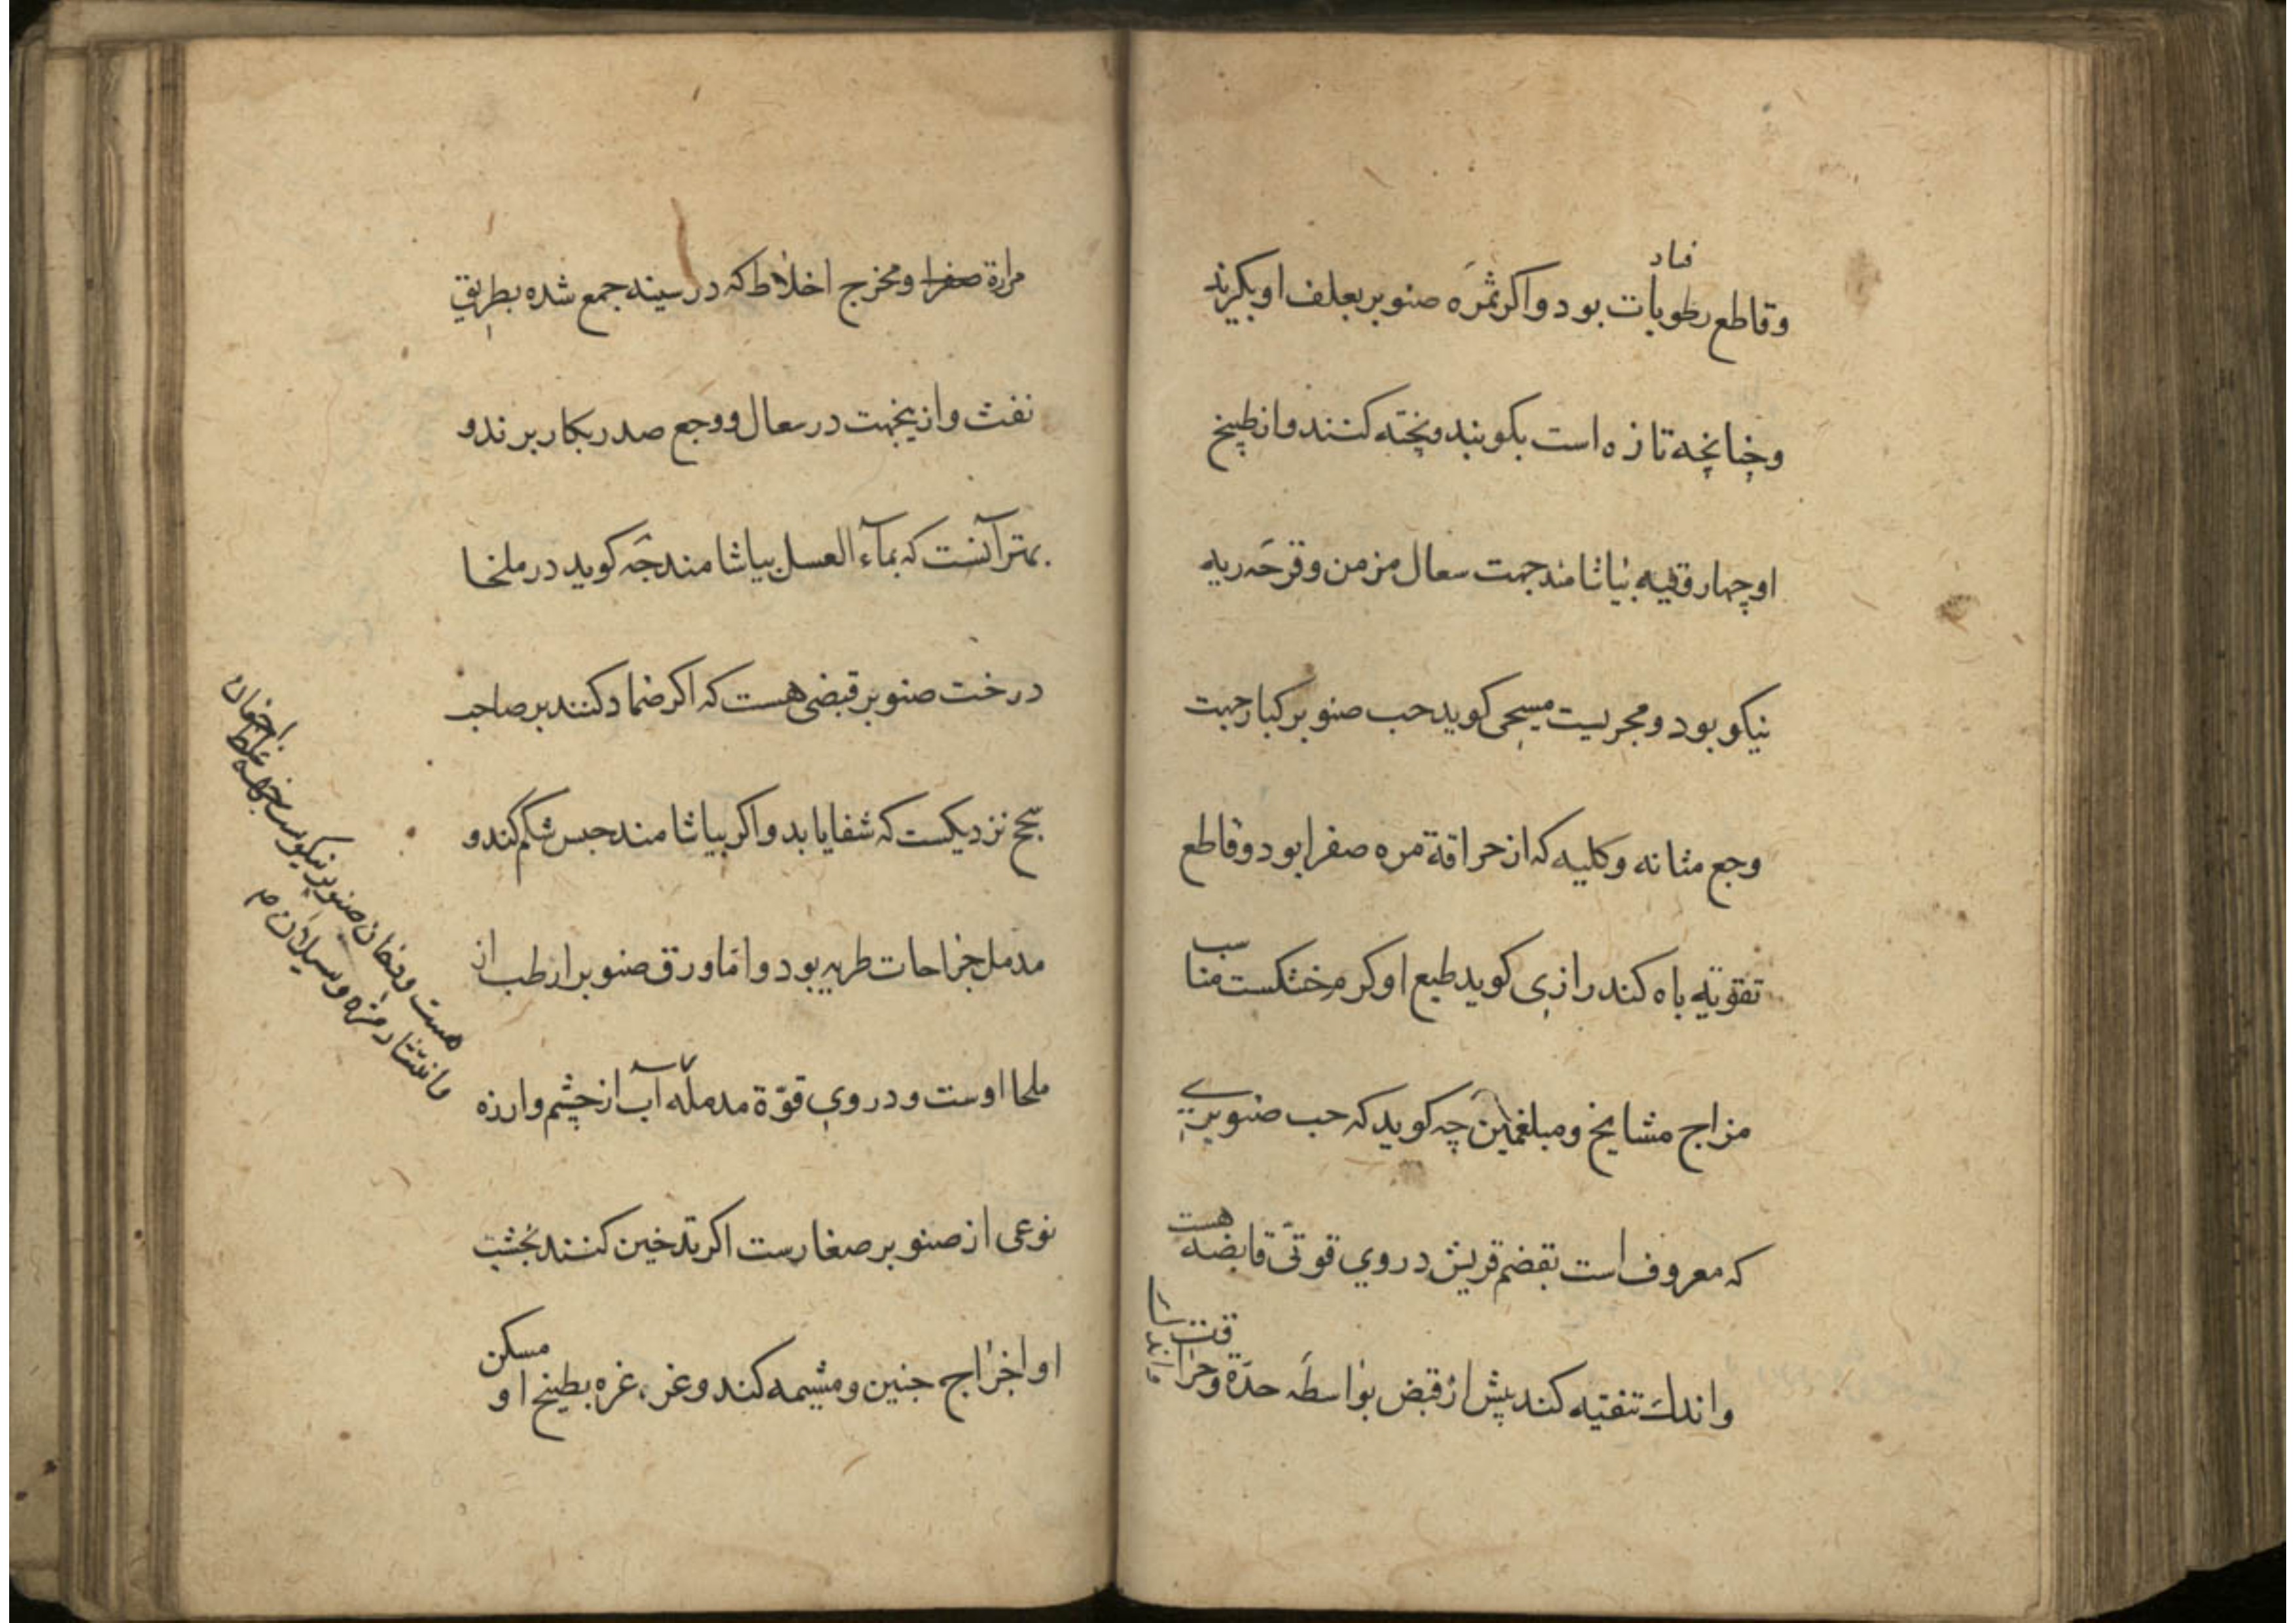 فساد
وقاطع رطوبات بود واکر ثمره صنوبر بعلف او بکیرند
وچنانچه تازه است بکوبند وپخته کنند واز طبیخ
او چهار وقیه بیاشامند جهت سعال مزمن وقرحه ریه
نیکو بود ومجربست مسیحی کوید حب صنوبر کبار جهت
وجع مثانه وکلیه که از حراقة مره صفرا بود وقاطع
تقویة باه کند رازی کوید طبع او کرم خشکست مناسب
مزاج مشایخ ومبلغمین چه کوید که حب صنوبری
که معروف است بقضم قریش در وی قوتی قابضه هست
واندك تنقیه کند پیش از قبض بواسطه حدة وحراقت
مرارة صفرا ومخرج اخلاط که در سینه جمع شده بطریق
نفث وازیجهت در سعال ووجع صدر بکار برند و
بهتر آنست که بماء العسل بیاشامند چه کوید در ملخا
درخت صنوبر قبضی هست که اکر ضماد کنند بر صاحب
سحج نزدیکست که شفا یابد واکر بیاشامند حبس شکم کند و
مدمل جراحات طریه بود واما ورق صنوبر ارطب از
ملحا اوست ودر وی قوة مدمله آب از چشم وارزه
نوعی از صنوبر صغارست اکر تدخین کنند بخشب
او اخراج جنین ومشیمه کند وغرغره بطبیخ او مسکن
هست ودخان صنوبر نیکوست جهة غلظ اجفان
وانتثار مژه وسیلان م